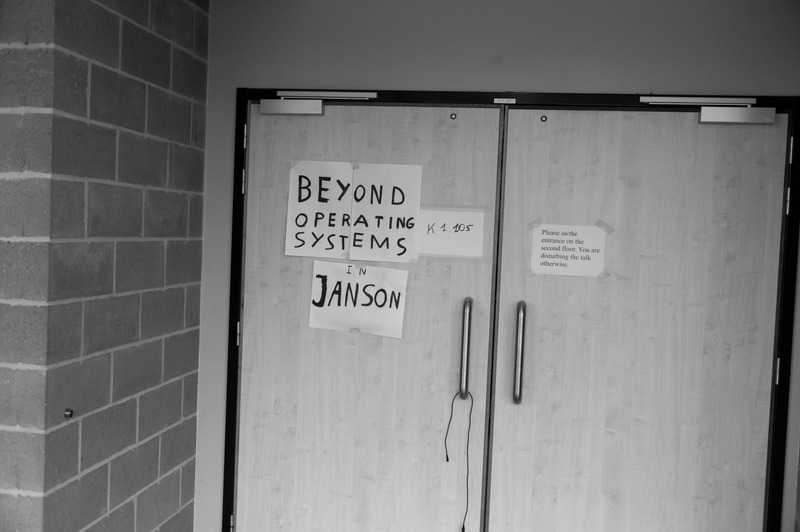 BEYOND
OPERATING
SYSTEMS
IN
JANSON
K 1.105
Please us the
entrance on the
second floor. You are
disturbing the talk
otherwise.